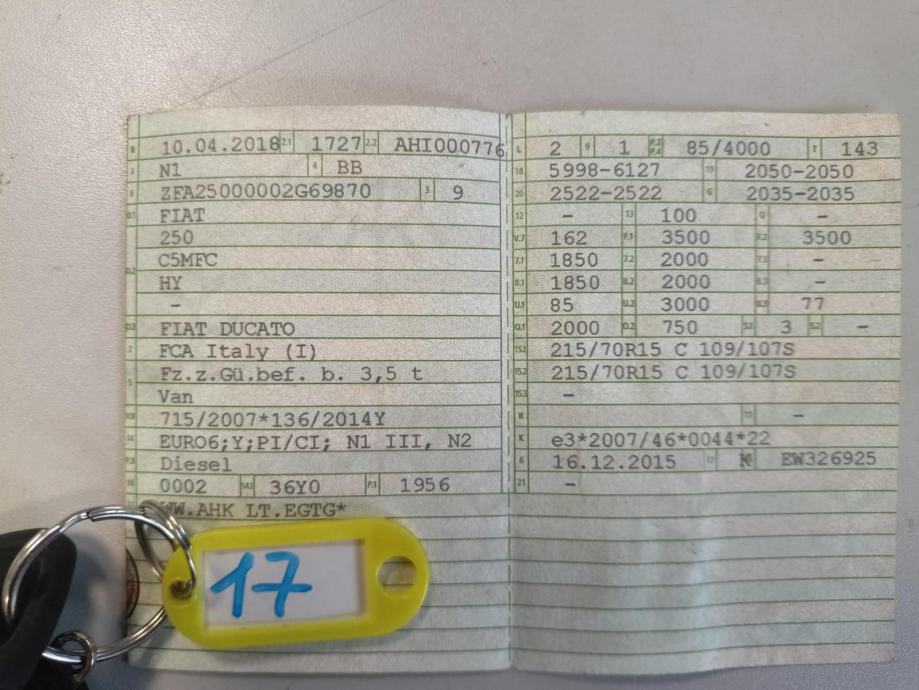 B 10.04.2018 2.1 1727 2.2 AHI000776
J N1 4 BB
E ZFA25000002G69870 3 9
D.1 FIAT
250
D.2 C5MFC
HY
-
D.3 FIAT DUCATO
2 FCA Italy (I)
5 Fz.z.Gü.bef. b. 3,5 t
Van
V.9 715/2007*136/2014Y
14 EURO6;Y;PI/CI; N1 III, N2
P.3 Diesel
10 0002 14.1 36Y0 P.1 1956
WW.AHK LT.EGTG*
17
L 2 9 1 P.2 P.4 85/4000 T 143
18 5998-6127 19 2050-2050
20 2522-2522 G 2035-2035
12 - 13 100 Q -
V.7 162 F.1 3500 F.2 3500
7.1 1850 7.2 2000 7.3 -
8.1 1850 8.2 2000 8.3 -
U.1 85 U.2 3000 U.3 77
O.1 2000 O.2 750 S.1 3 S.2 -
15.1 215/70R15 C 109/107S
15.2 215/70R15 C 109/107S
15.3 -
R 11 -
K e3*2007/46*0044*22
6 16.12.2015 17 K 16 EW326925
21 -